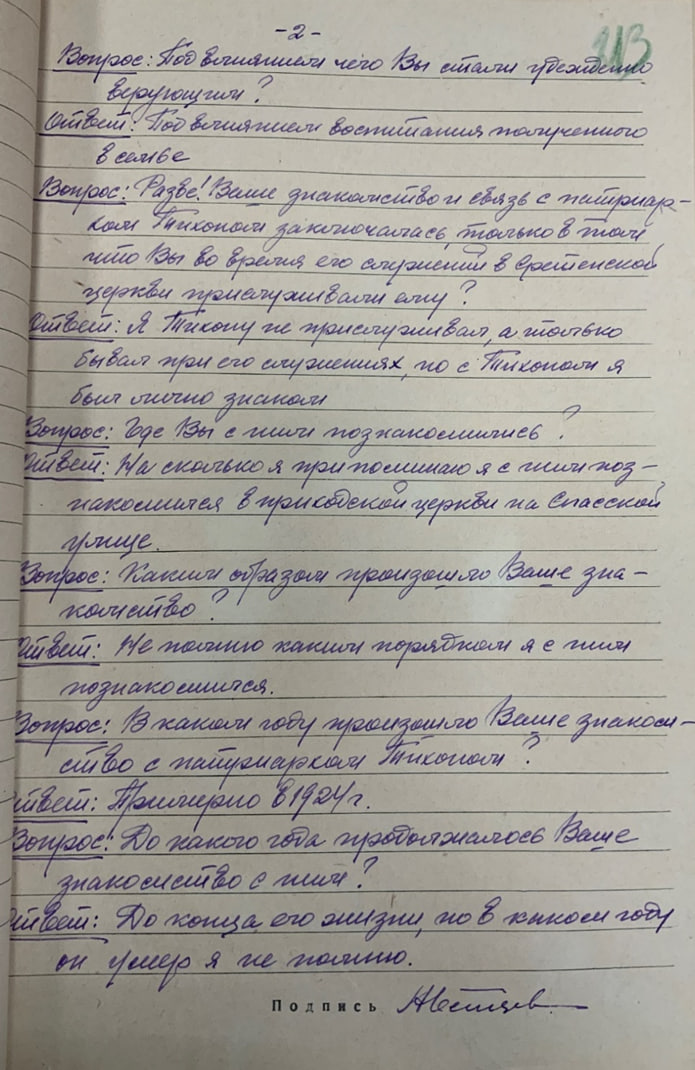 -2-
113
Вопрос: Под влиянием чего Вы стали убежденно
верующим?
Ответ: Под влиянием воспитания полученного
в семье
Вопрос: Разве! Ваше знакомство и связь с патриар-
хом Тихоном заключалась, только в том
что Вы во время его служений в Сретенской
церкви прислуживали ему?
Ответ: Я Тихону не прислуживал, а только
бывал при его служениях, но с Тихоном я
был лично знаком
Вопрос: Где Вы с ним познакомились?
Ответ: На сколько я припоминаю я с ним поз-
накомился в приходской церкви на Спасской
улице.
Вопрос: Каким образом произошло Ваше зна-
комство?
Ответ: Не помню каким порядком я с ним
познакомился.
Вопрос: В каком году произошло Ваше знаком-
ство с патриархом Тихоном?
Ответ: Примерно в 1924 г.
Вопрос: До какого года продолжалось Ваше
знакомство с ним?
Ответ: До конца его жизни, но в каком году
он умер я не помню.
Подпись